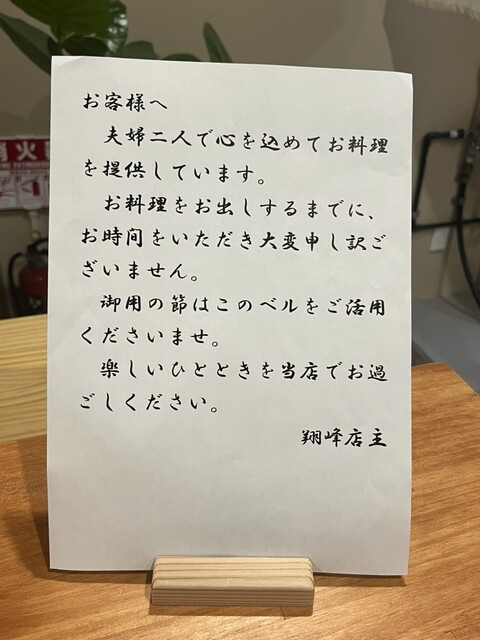 お客様へ
夫婦二人で心を込めてお料理
を提供しています。
お料理をお出しするまでに、
お時間をいただき大変申し訳ご
ざいません。
御用の節はこのベルをご活用
くださいませ。
楽しいひとときを当店でお過
ごしください。
翔峰店主
消火